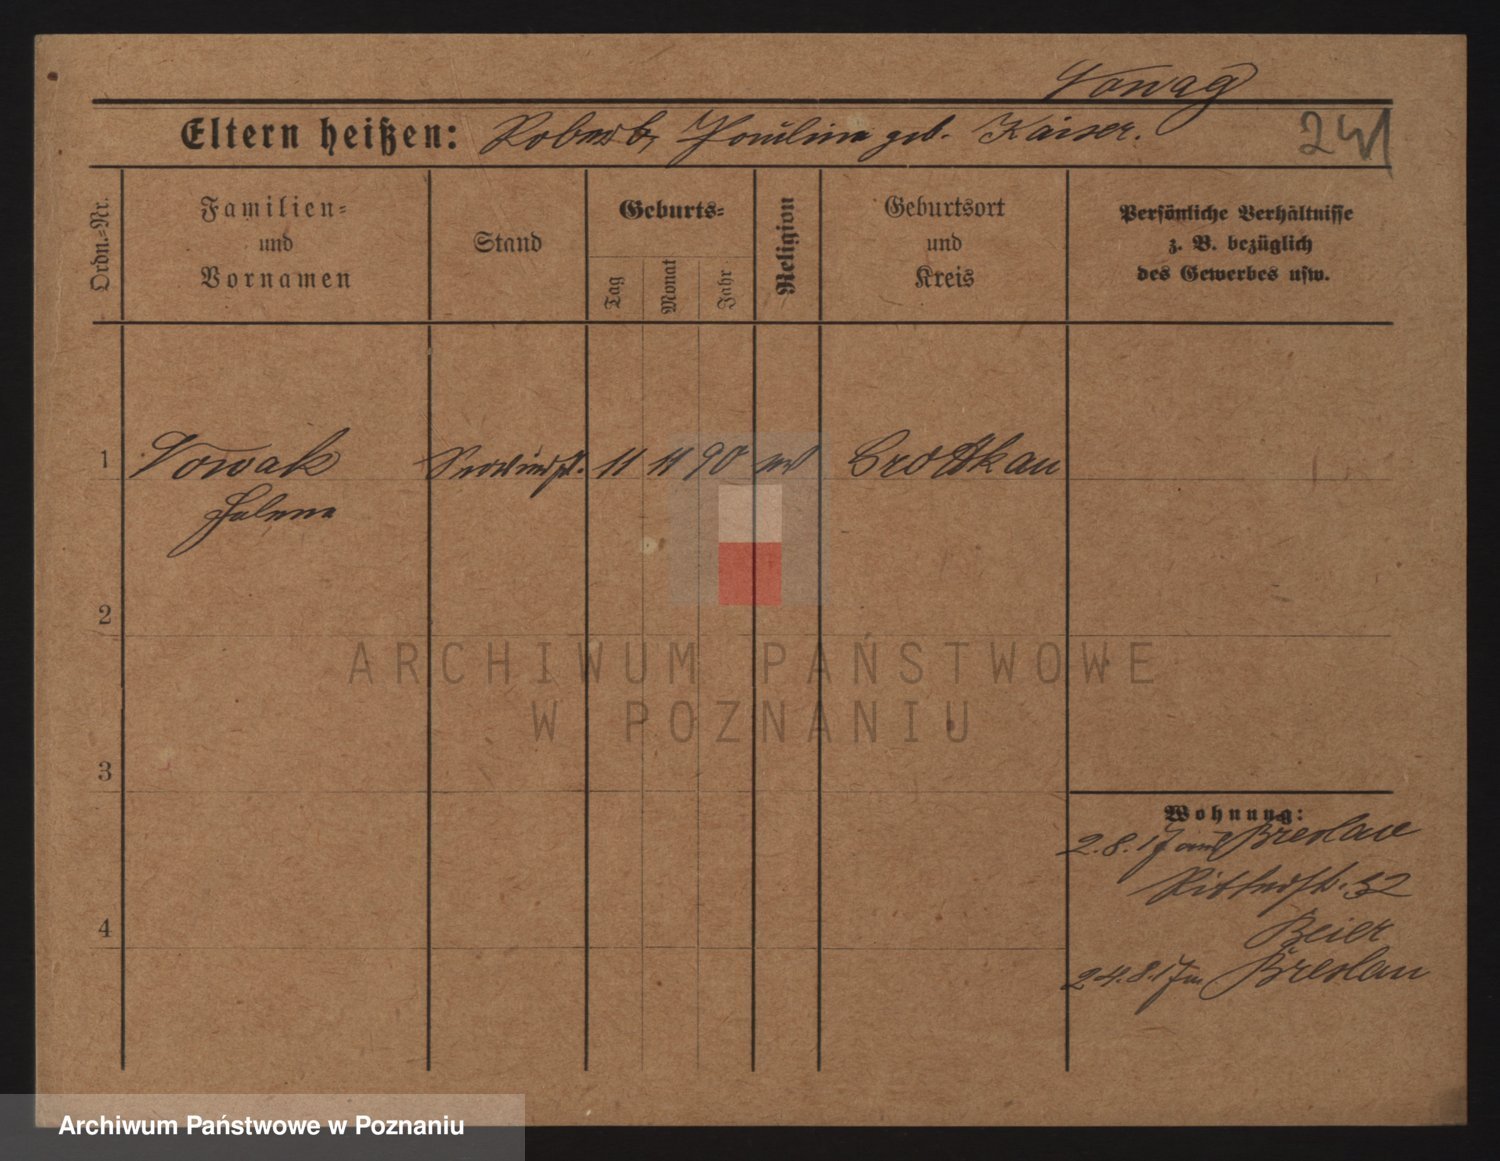 Nowag
Eltern heißen: Robert, Pauline geb. Kaiser. 241
Ordn.-Nr.
Familien-
und
Vornamen
Stand
Geburts-
Tag
Monat
Jahr
Religion
Geburtsort
und
Kreis
Persönliche Verhältnisse
z. B. bezüglich
des Gewerbes usw.
1 Nowak 11 11 90 Grottkau
Helene
2
ARCHIWUM PAŃSTWOWE
W POZNANIU
3
Wohnung:
2.8.17 aus Breslau
Ritterstr. 32
4 Beier
24.8.17 n Breslau
Archiwum Państwowe w Poznaniu